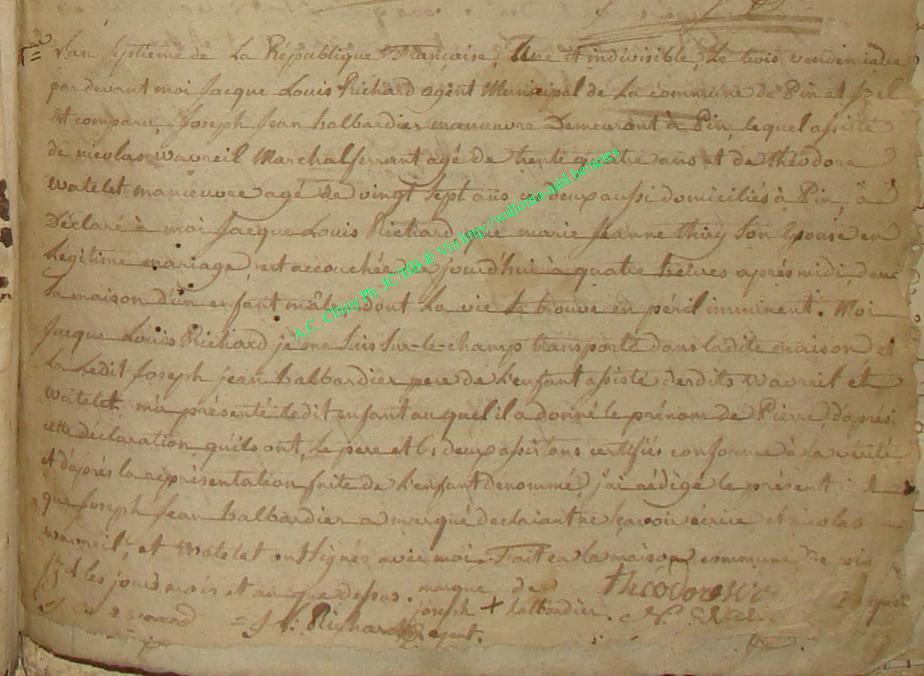 L'an septieme de La République Française, Une et indivisible, Le trois vendemiaire
par devant moi Jacque Louis Richard agent Municipal de La commune de Pin et Izel
Est comparu, Joseph Jean halbardier manœuvre Demeurant à Pin, Lequel assisté
de nicolas wavreil Marchal ferrant agé de trente quatre ans et de théodore
watelet manœuvre agé de vingt sept ans deux aussi domiciliés à Pin, a
Déclaré à moi Jacque Louis Richard que marie Jeanne thiry son Epouse en
Légitime mariage, est accouchée ce jourd'hui à quatre heures après midi, dans
sa maison d'un enfant mâle, dont La vie se trouve en péril imminent. Moi
Jacque Louis Richard je me suis sur-le-champ transporté dans ladite maison et
La Ledit Joseph jean halbardier pere de L'enfant assisté desdits wavreil et
watelet m'a présenté Ledit enfant auquel il a donné le prénom de Pierre, d'après
cette déclaration qu'ils ont, Le pere et les deux assistans certifiés conforme à La vérité
et d'après la représentation faite de L'enfant denommé, j'ai rédigé le présent
que Joseph Jean halbardier a marqué declarant ne savoir écrire et nicolas
wavreil, et watelet ont signés avec moi. Fait en la maison commune de pin
les jour mois et an que dessus. marque de theodore
= J L: Richard agent. joseph + halbardier. N.